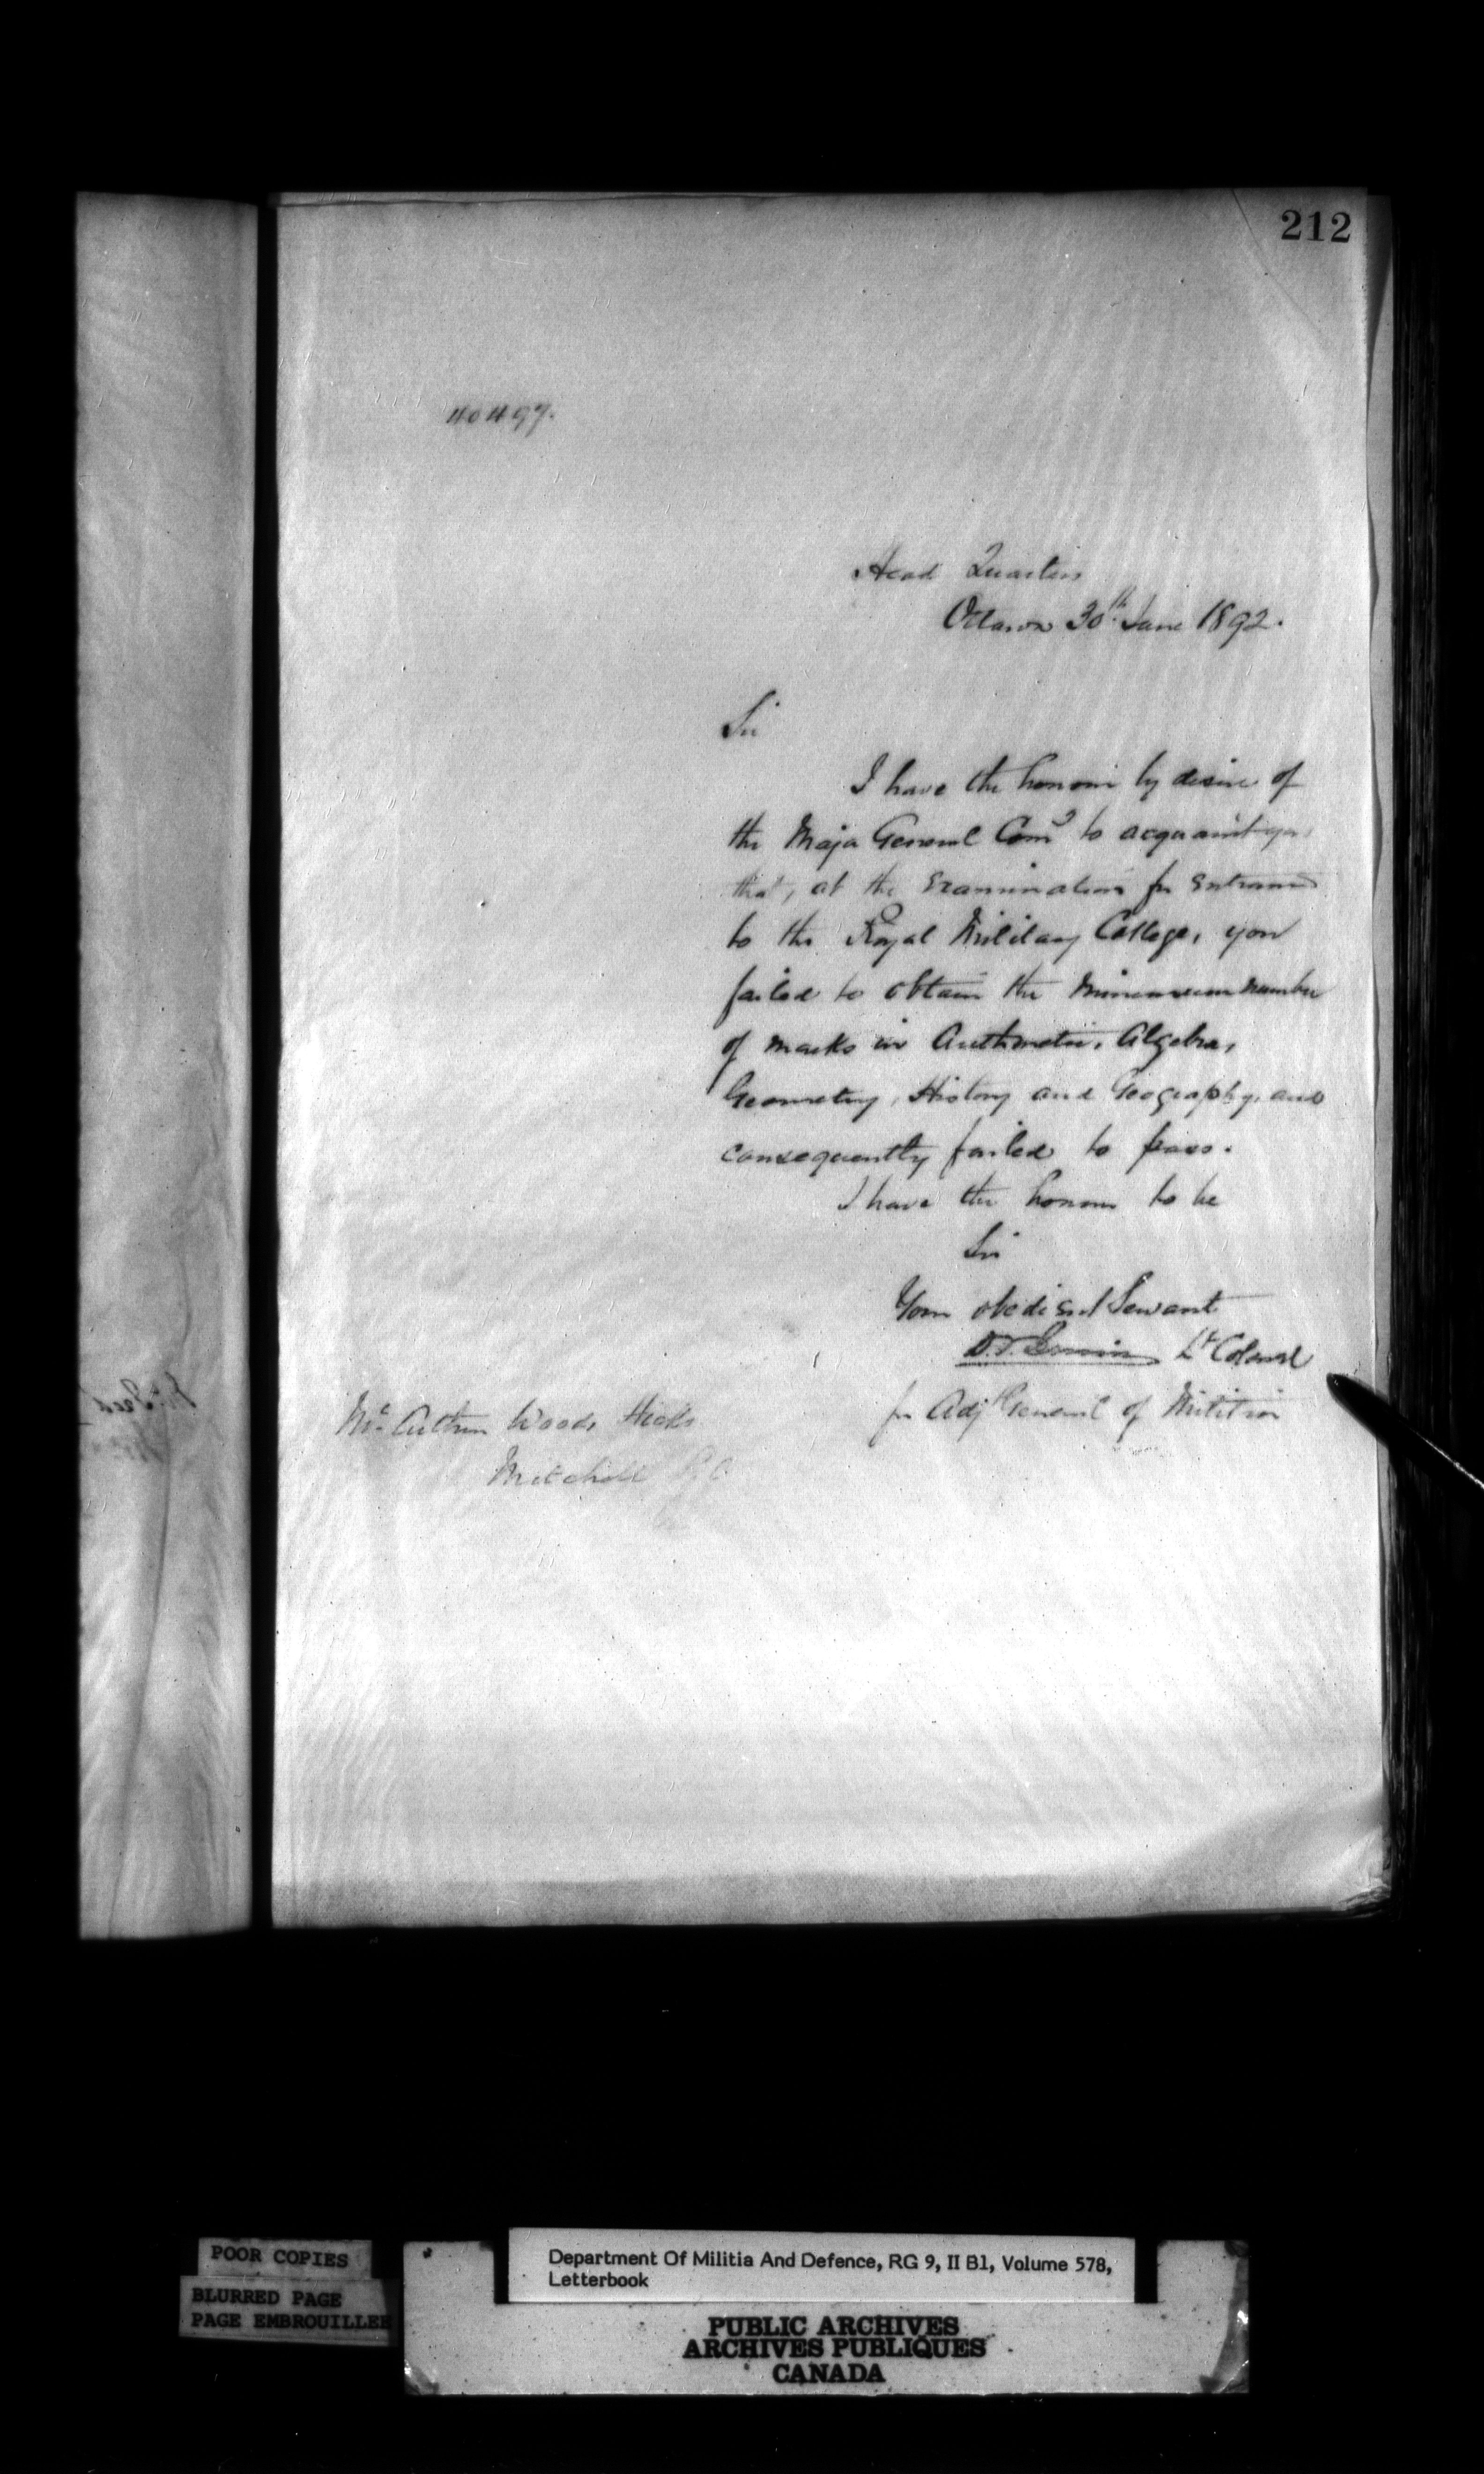 212
40497.
Head Quarters
Ottawa 30th June 1892.
Sir
I have the honour by desire of
the Major General Comg to acquaint you
that, at the Examination for Entrance
to the Royal Military College, you
failed to obtain the Minimum number
of marks in Arithmetic, Algebra,
Geometry, History and Geography, and
consequently failed to pass.
I have the honour to be
Sir
Your obedient Servant
D.T. Irwin Lt Colonel
for Adjt General of Militia
Mr. Arthur Woods Hicks
Mitchell
POOR COPIES
BLURRED PAGE
PAGE EMBROUILLEE
Department Of Militia And Defence, RG 9, II B1, Volume 578,
Letterbook
PUBLIC ARCHIVES
ARCHIVES PUBLIQUES
CANADA